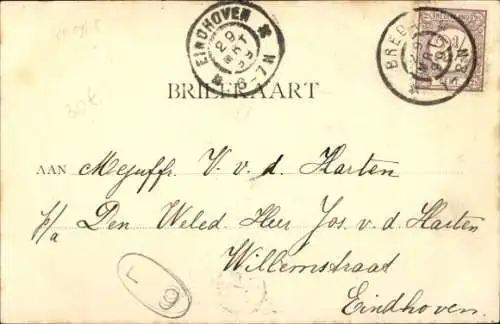 EINDHOVEN
BREDA
BRIEFKAART
AAN Mejuffr. V. v. d. Harten
p/a Den Weled. Heer Jos. v. d. Harten
Willemstraat
Eindhoven.